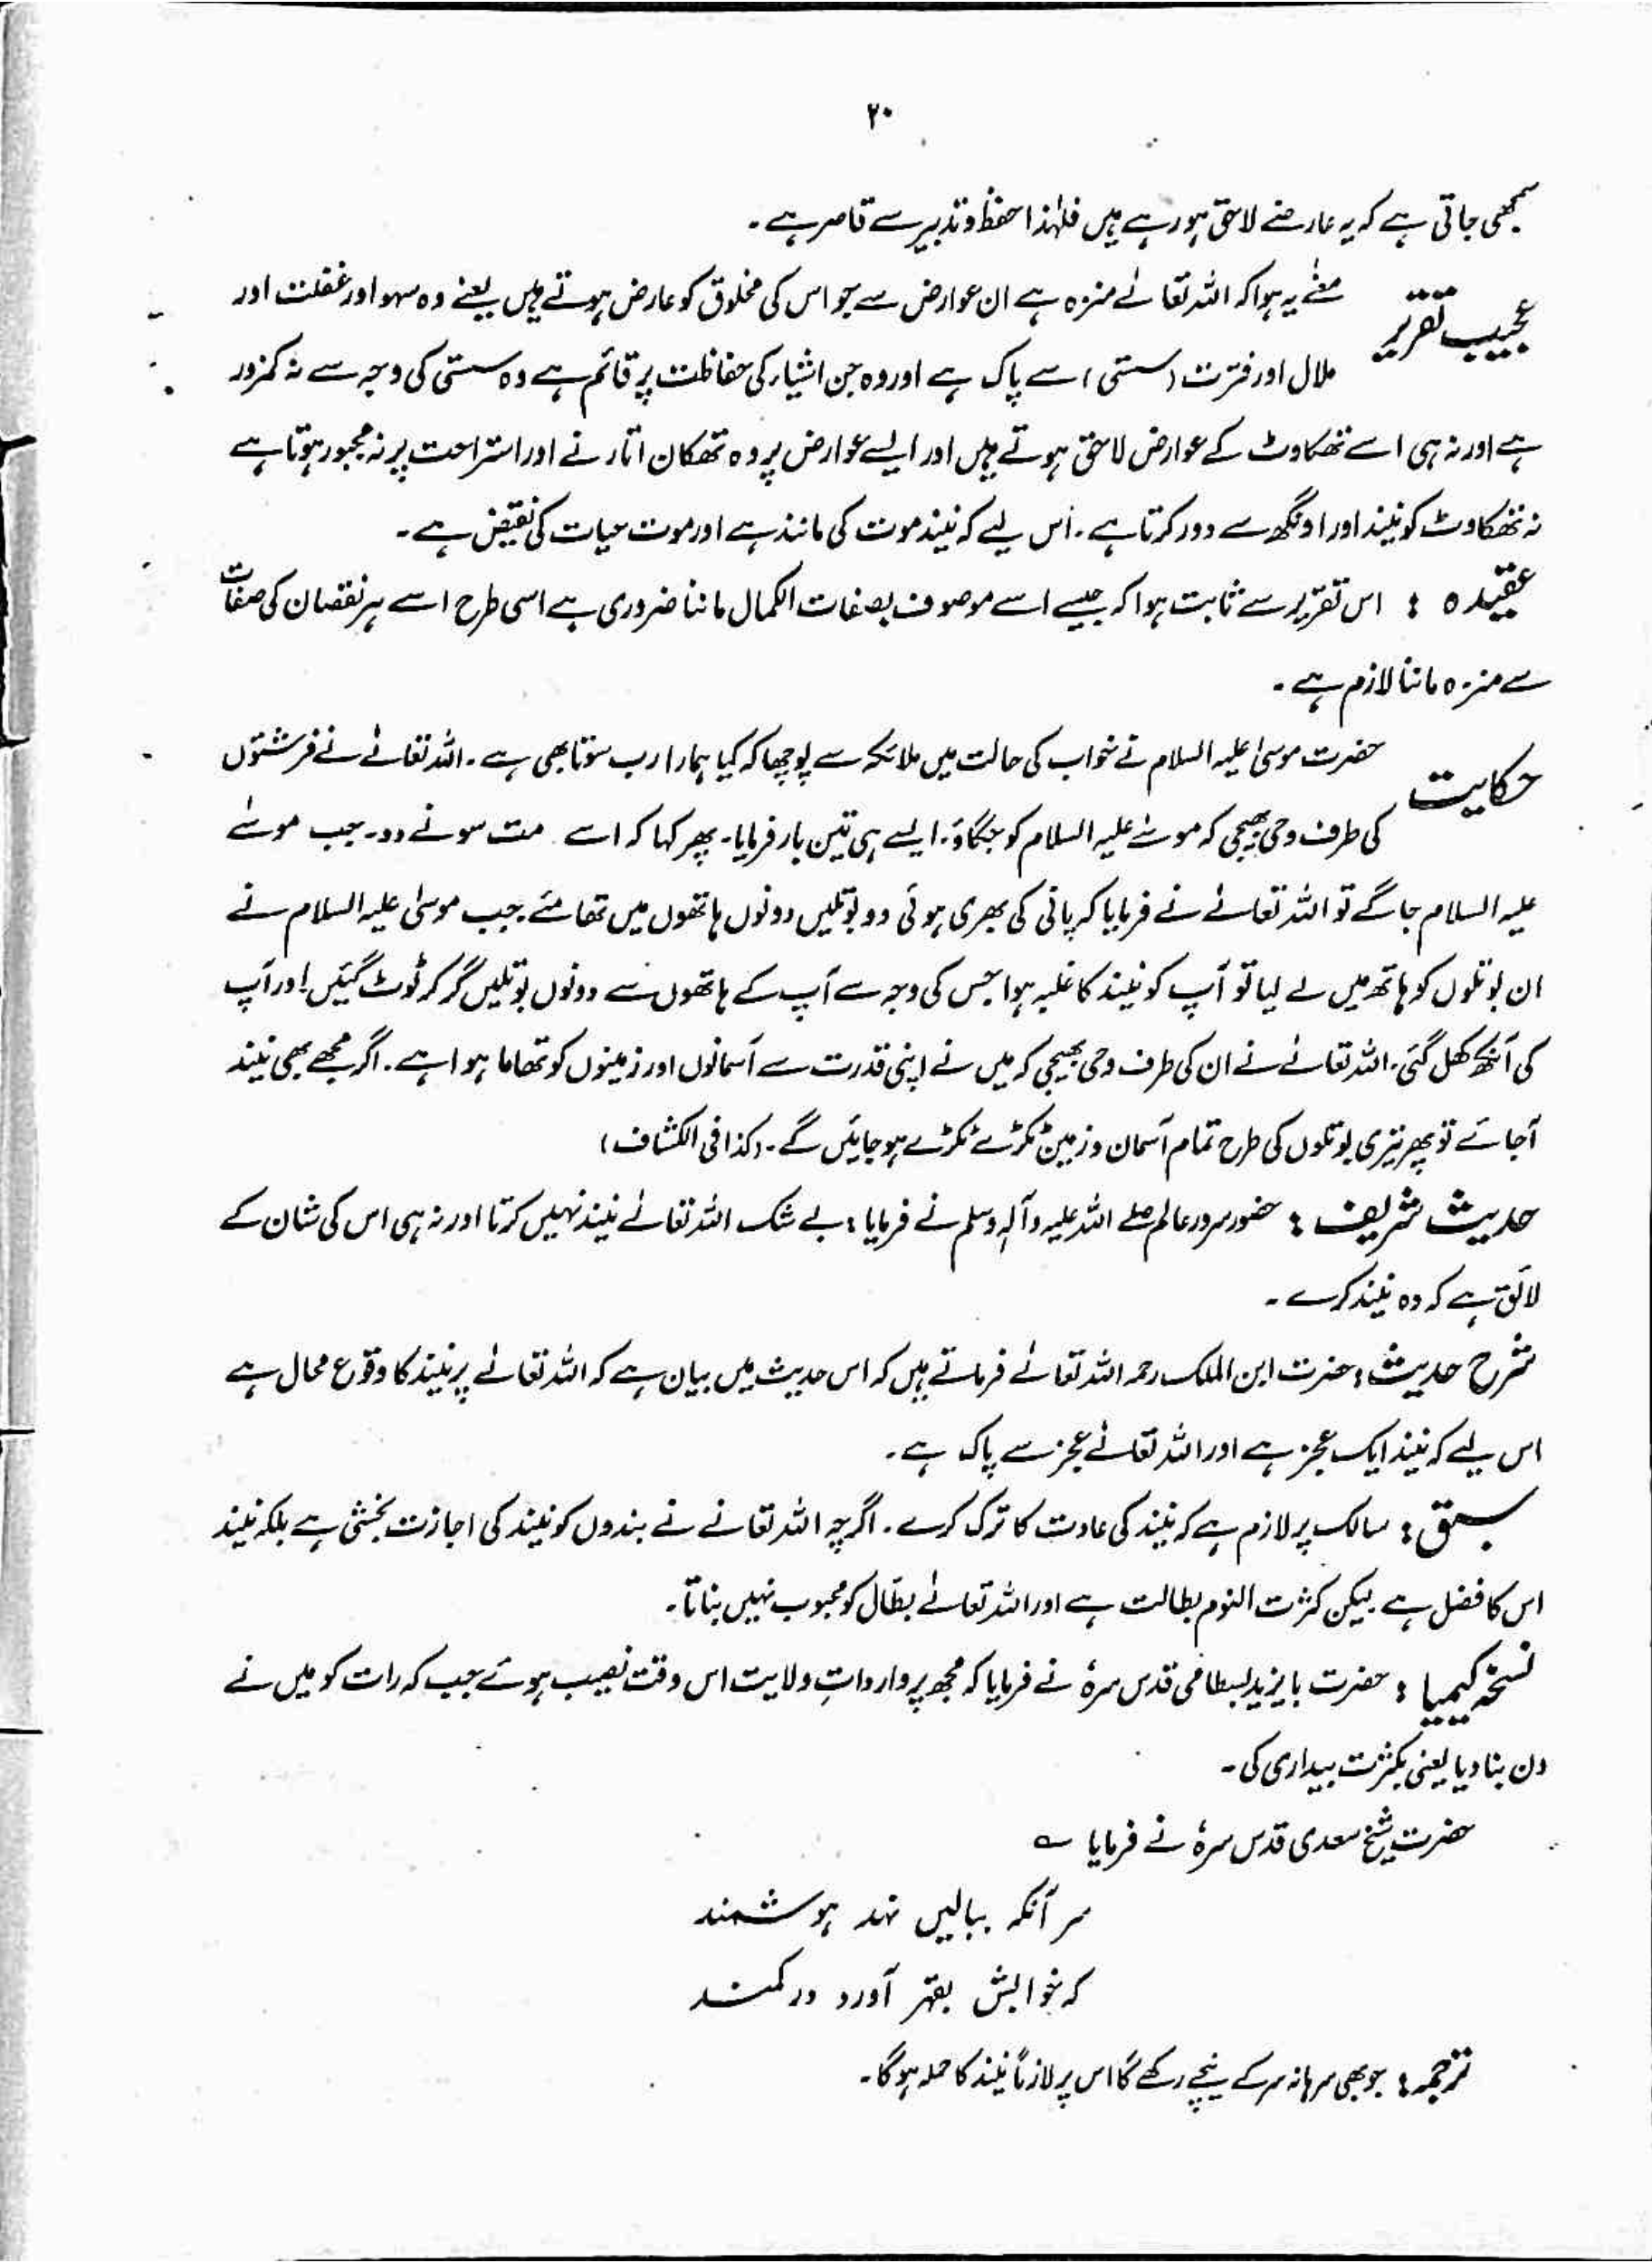 ۲۰
سمجھی جاتی ہے کہ یہ عارضے لاحق ہو رہے ہیں فلہٰذا حفظ و تدبیر سے قاصر ہے۔
عجیب تقریر
معنے یہ ہوا کہ اللہ تعالےٰ منزہ ہے ان عوارض سے جو اس کی مخلوق کو عارض ہوتے ہیں یعنے وہ سہو اور غفلت اور
ملال اور فترت (سستی) سے پاک ہے اور وہ جن اشیاء کی حفاظت پر قائم ہے وہ سستی کی وجہ سے نہ کمزور
ہے اور نہ ہی اسے تھکاوٹ کے عوارض لاحق ہوتے ہیں اور ایسے عوارض پر وہ تھکان اتارنے اور استراحت پر نہ مجبور ہوتا ہے
نہ تھکاوٹ کو نیند اور اونگھ سے دور کرتا ہے۔ اس لیے کہ نیند موت کی مانند ہے اور موت حیات کی نقیض ہے۔
عقیدہ : اس تقریر سے ثابت ہوا کہ جیسے اسے موصوف بصفات الکمال ماننا ضروری ہے اسی طرح اسے ہر نقصان کی صفات
سے منزہ ماننا لازم ہے۔
حکایت
حضرت موسیٰ علیہ السلام نے خواب کی حالت میں ملائکہ سے پوچھا کہ کیا ہمارا رب سوتا بھی ہے۔ اللہ تعالےٰ نے فرشتوں
کی طرف وحی بھیجی کہ موسےٰ علیہ السلام کو جگاؤ۔ ایسے ہی تین بار فرمایا۔ پھر کہا کہ اسے مت سونے دو۔ جب موسےٰ
علیہ السلام جاگے تو اللہ تعالےٰ نے فرمایا کہ پانی کی بھری ہوئی دو بوتلیں دونوں ہاتھوں میں تھامئے جب موسیٰ علیہ السلام نے
ان بوتلوں کو ہاتھ میں لے لیا تو آپ کو نیند کا غلبہ ہوا جس کی وجہ سے آپ کے ہاتھوں سے دونوں بوتلیں گر کر ٹوٹ گئیں اور آپ
کی آنکھ کھل گئی۔ اللہ تعالےٰ نے ان کی طرف وحی بھیجی کہ میں نے اپنی قدرت سے آسمانوں اور زمینوں کو تھاما ہوا ہے۔ اگر مجھے بھی نیند
آجائے تو پھر تیری بوتلوں کی طرح تمام آسمان و زمین ٹکڑے ٹکڑے ہو جائیں گے۔ (کذا فی الکشاف)
حدیث شریف : حضور سرور عالم صلے اللہ علیہ وآلہ وسلم نے فرمایا : بے شک اللہ تعالےٰ نیند نہیں کرتا اور نہ ہی اس کی شان کے
لائق ہے کہ وہ نیند کرے۔
شرح حدیث : حضرت ابن الملک رحمہ اللہ تعالےٰ فرماتے ہیں کہ اس حدیث میں بیان ہے کہ اللہ تعالےٰ پر نیند کا وقوع محال ہے
اس لیے کہ نیند ایک عجز ہے اور اللہ تعالےٰ عجز سے پاک ہے۔
سبق : سالک پر لازم ہے کہ نیند کی عادت کا ترک کرے۔ اگرچہ اللہ تعالےٰ نے بندوں کو نیند کی اجازت بخشی ہے بلکہ نیند
اس کا فضل ہے لیکن کثرت النوم بطالت ہے اور اللہ تعالےٰ بطّال کو محبوب نہیں بناتا۔
نسخہ کیمیا : حضرت بایزید بسطامی قدس سرہٗ نے فرمایا کہ مجھ پر وارداتِ ولایت اس وقت نصیب ہوئے جب کہ رات کو میں نے
دن بنا دیا یعنی بکثرت بیداری کی۔
حضرت شیخ سعدی قدس سرہٗ نے فرمایا ؎
سر آنکہ ببالیں نہد ہوشمند
کہ خوابش بقہر آورد در کمند
ترجمہ : جو بھی سرہانہ سر کے نیچے رکھے گا اس پر لازماً نیند کا حملہ ہوگا۔